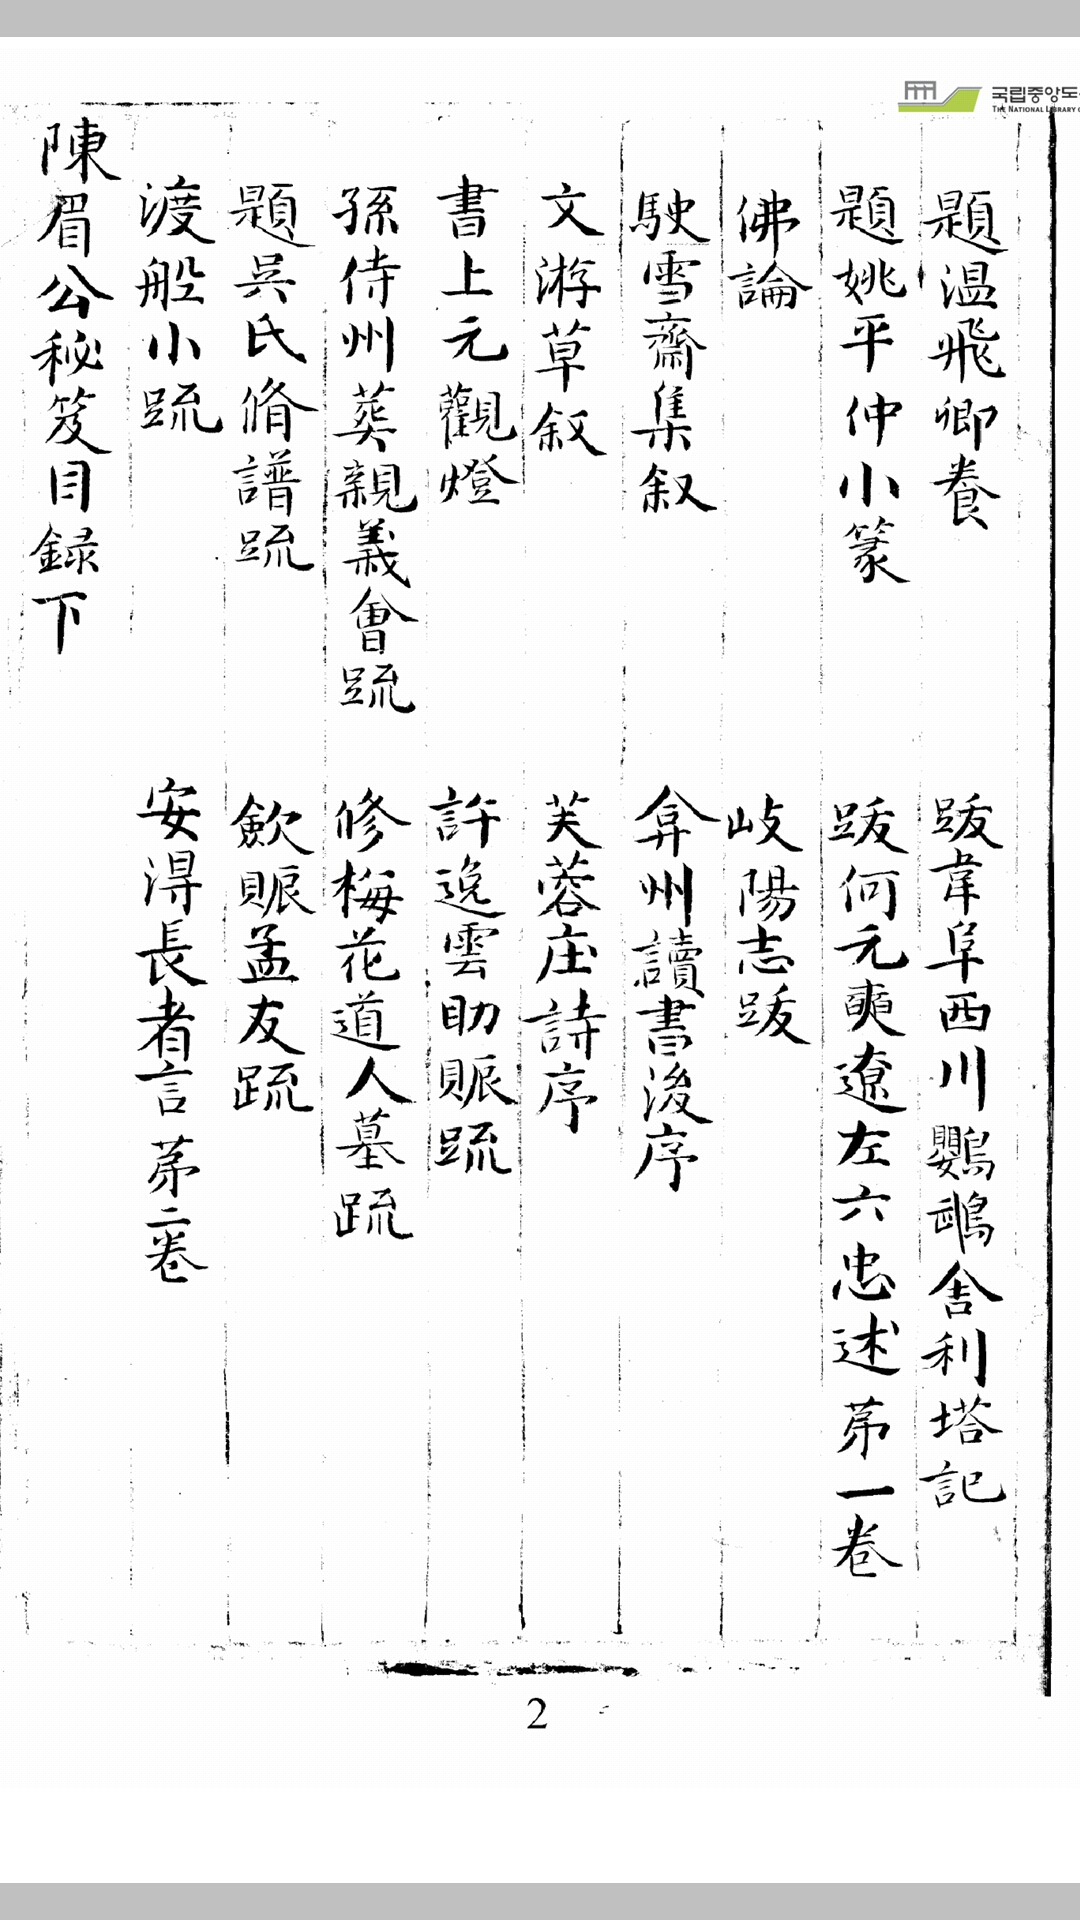 국립중앙도
THE NATIONAL LIBRARY
題温飛卿養 跋韋阜西川鸚鵡舎利塔記
題姚平仲小篆 跋何元奭遼左六忠述 苐一卷
佛論 岐陽志跋
駛雪齋集叙 弇州讀書後序
文游草叙 芙蓉庄詩序
書上元觀燈 許逸雲助賑䟽
孫侍州葬親義會䟽 修梅花道人墓䟽
題吳氏脩譜䟽 歛賑孟友䟽
渡船小䟽 安得長者言 苐二卷
陳眉公秘笈目録下
2